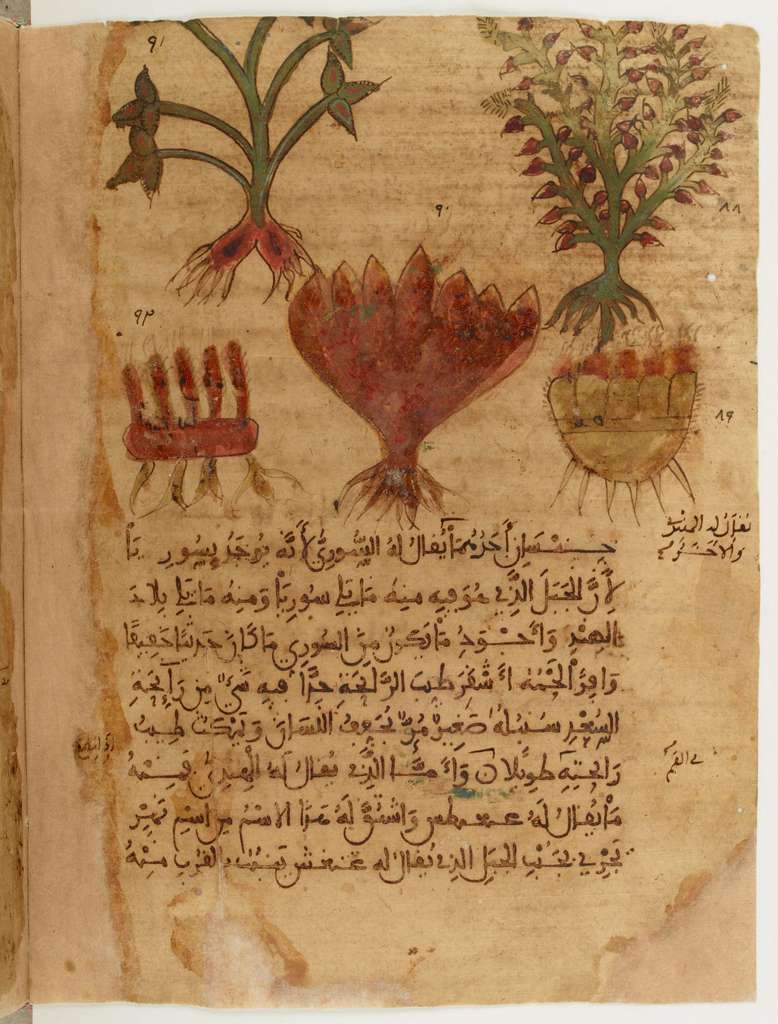 ٩١
٨٨
٩٠
٩٢
٨٩
جنسان أحدهما يقال له السوري لا أنه يوجد بسوريا
لأن الجبل الذي هو فيه منه ما يلي سوريا ومنه ما يلي بلاد
الهند وأجود ما يكون من السوري ما كان حديثا خفيفا
وافر الجمة أشقر طيب الرائحة جدا فيه شيء من رائحة
السعد سنبله صغير مر يجفف اللسان ويمكث طيب
رائحته طويلا وأما الذي يقال له الهندي فمنه
ما يقال له واشتق له هذا الاسم من اسم نهر
يجري بجنب الجبل الذي يقال له بالقرب منه
يقال له
في الفم